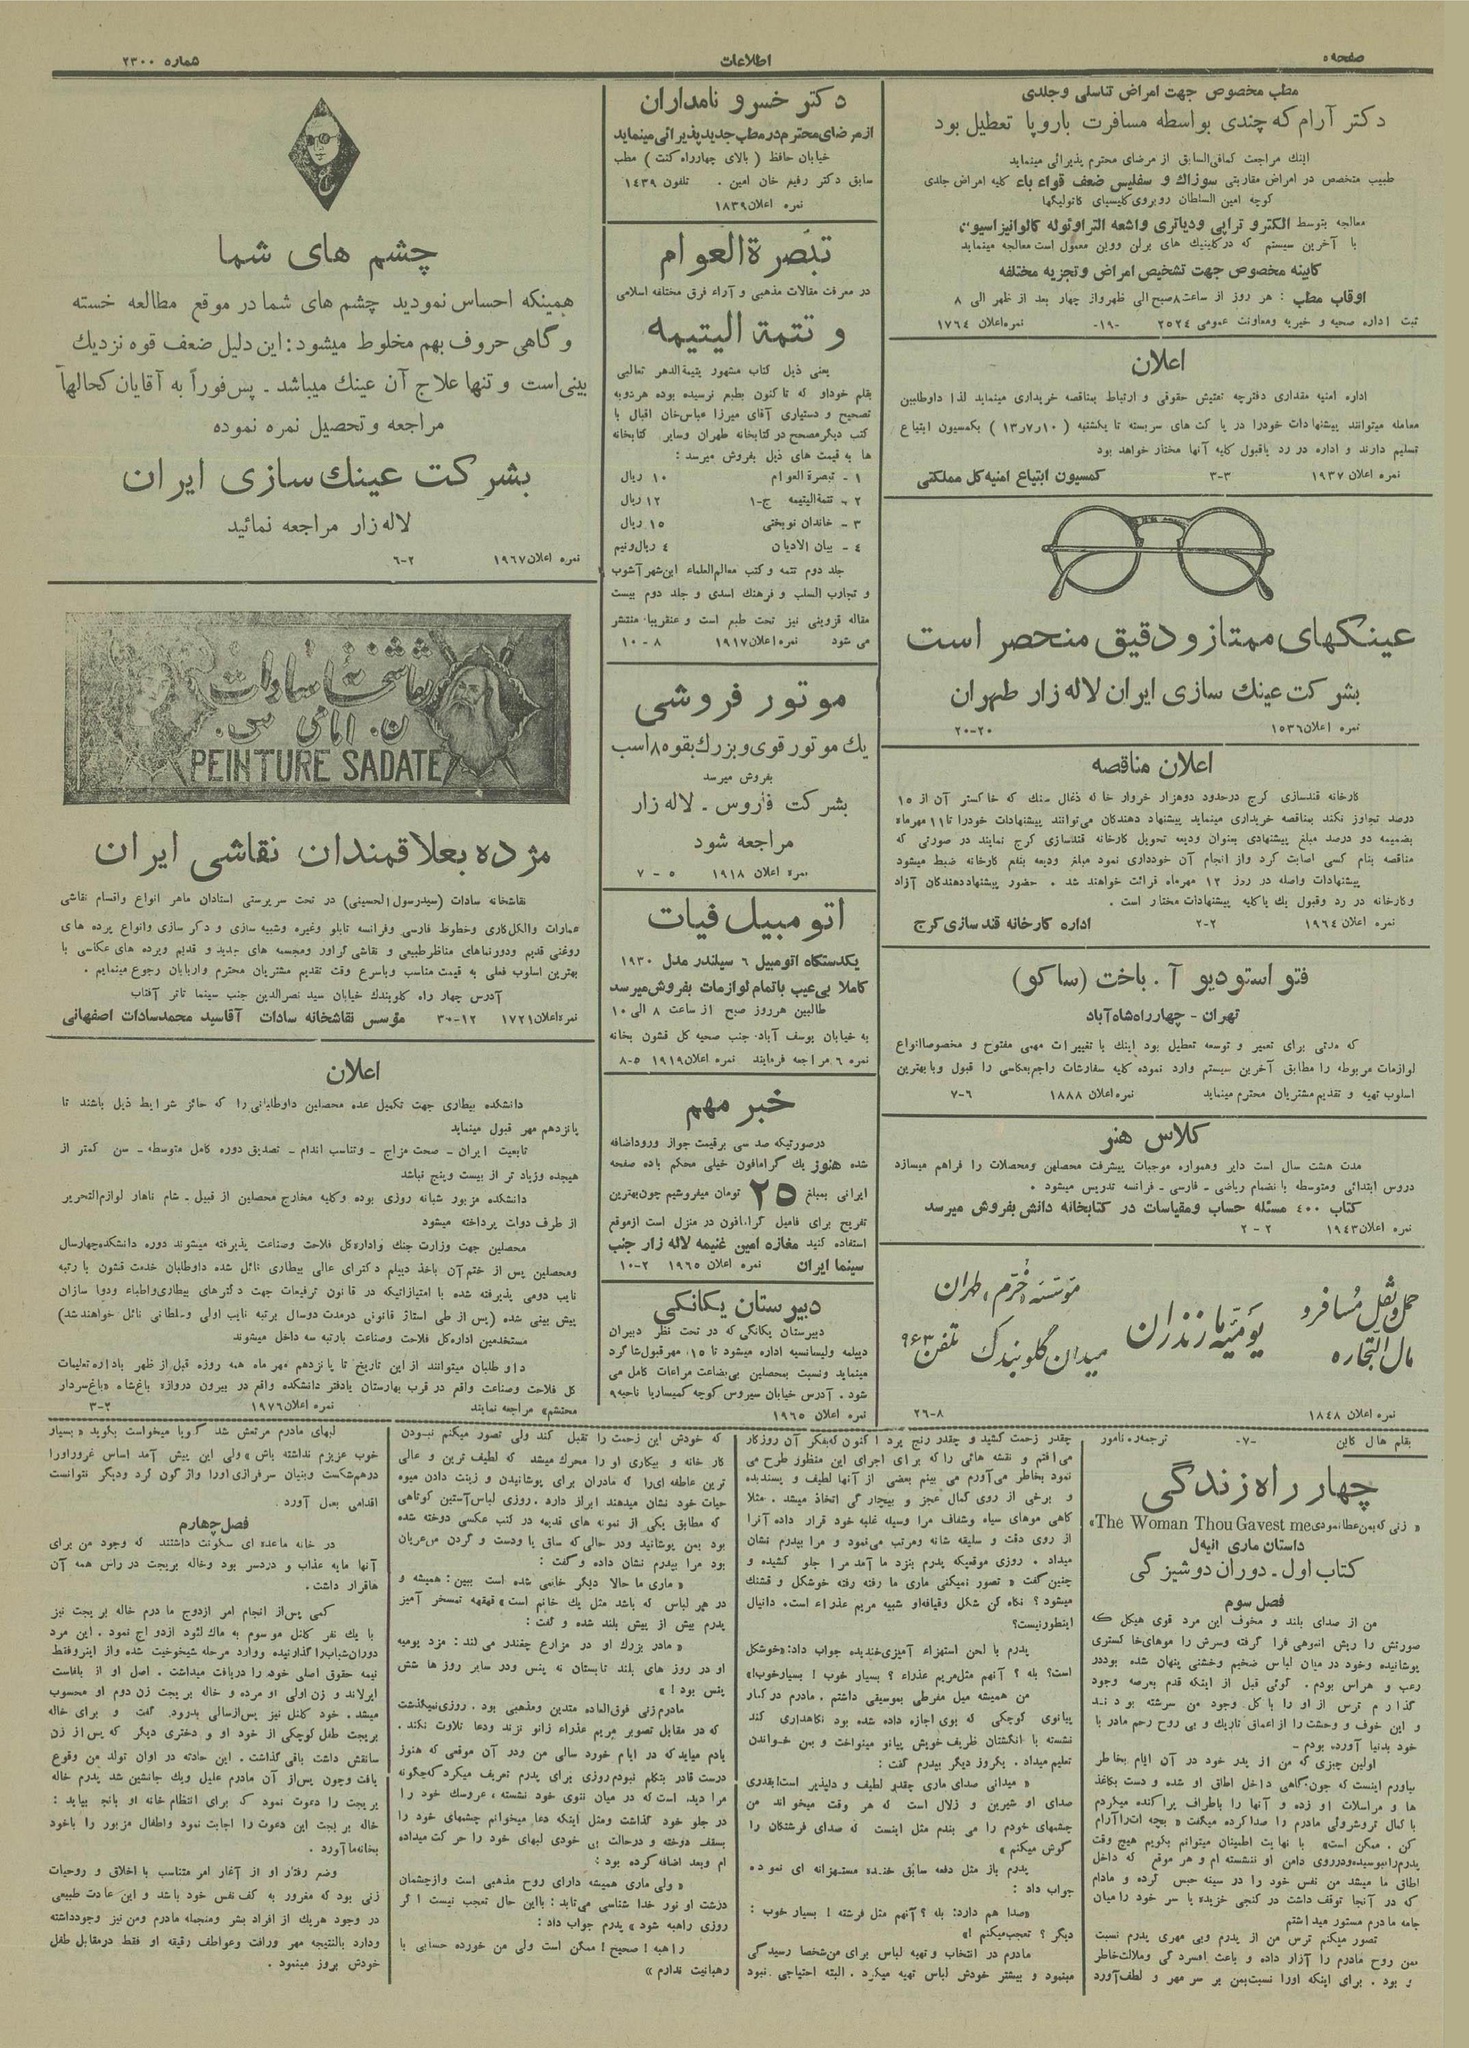 صفحه ۵
اطلاعات
شماره ۲۳۰۰
مطب مخصوص جهت امراض تناسلی و جلدی
دکتر آرام که چندی بواسطه مسافرت باروپا تعطیل بود
اینك مراجعت کمافی‌السابق از مرضای محترم پذیرائی مینماید
طبیب متخصص در امراض مقاربتی سوزاك و سفلیس ضعف قواء باء کلیه امراض جلدی
کوچه امین السلطان روبروی کلیسیای کاتولیکها
معالجه بتوسط الکترو تراپی ودیاتری واشعه التراوئوله کالوانیزاسیون
با آخرین سیستم که در کلینیك های برلن ووین معمول است معالجه مینماید
کابینه مخصوص جهت تشخیص امراض وتجزیه مختلفه
اوقاب مطب : هر روز از ساعت ۸ صبح الی ظهرواز چهار بعد از ظهر الی ۸
ثبت اداره صحیه و خیریه ومعاونت عمومی ۲۵۲٤ -۱۹- نمره اعلان ۱۷٦٤
اعلان
اداره امنیه مقداری دفترچه تفتیش حقوقی و ارتباط بمناقصه خریداری مینماید لذا داوطلبین
معامله میتوانند پیشنهادات خودرا در پاکت های سربسته تا یکشنبه (۱۰ر۷ر۱۳) بکمسیون ابتیاع
تسلیم دارند و اداره در رد یاقبول کلیه آنها مختار خواهد بود
نمره اعلان ۱۹۳۷ ۳-۳ کمسیون ابتیاع امنیه کل مملکتی
عینکهای ممتاز و دقیق منحصر است
بشرکت عینك سازی ایران لاله زار طهران
نمره اعلان ۱۵۳٦ ۲۰-۲۰
اعلان مناقصه
کارخانه قندسازی کرج درحدود دوهزار خروار خاله ذغال سنك که خاکستر آن از ۱۵
درصد تجاوز نکند بمناقصه خریداری مینماید پیشنهاد دهندکان می‌توانند پیشنهادات خودرا تا ۱۱ مهرماه
بضمیمه دو درصد مبلغ پیشنهادی بعنوان ودیعه تحویل کارخانه قندسازی کرج نمایند در صورتی که
مناقصه بنام کسی اصابت کرد واز انجام آن خودداری نمود مبلغ ودیعه بنفع کارخانه ضبط میشود
پیشنهادات واصله در روز ۱۲ مهرماه قرائت خواهند شد . حضور پیشنهاددهندکان آزاد
وکارخانه در رد وقبول یك یاکلیه پیشنهادات مختار است .
نمره اعلان ۱۹٦٤ ۲-۲ اداره کارخانه قند سازی کرج
فتو استودیو آ . باخت (ساکو)
تهران - چهارراه شاه‌آباد
که مدتی برای تعمیر و توسعه تعطیل بود اینك با تغییرات مهمی مفتوح و مخصوصا انواع
لوازمات مربوطه را مطابق آخرین سیستم وارد نموده کلیه سفارشات راجع بعکاسی را قبول وبا بهترین
اسلوب تهیه و تقدیم مشتریان محترم مینماید نمره اعلان ۱۸۸۸ ٦-۷
کلاس هنر
مدت هشت سال است دایر وهمواره موجبات پیشرفت محصلین ومحصلات را فراهم میسازد
دروس ابتدائی ومتوسطه با نضمام ریاضی - فارسی - فرانسه تدریس میشود .
کتاب ٤۰۰ مسئله حساب ومقیاسات در کتابخانه دانش بفروش میرسد
نمره اعلان ۱۹٤۳ ۲ - ۲
حمل و نقل مسافر و
مال التجاره
یومیه مازندران
مؤسسه خرم، طهران
میدان گلوبندک تلفن ۹۶۳
نمره اعلان ۱۸٤۸ ۸-۲٦
دکتر خسرو نامداران
از مرضای محترم در مطب جدید پذیرائی مینماید
خیابان حافظ (بالای چهارراه کنت) مطب
سابق دکتر رفیع خان امین . تلفون ۱٤۳۹
نمره اعلان ۱۸۳۹
تبصرة العوام
در معرفت مقالات مذهبی و آراء فرق مختلفه اسلامی
و تتمة الیتیمه
یعنی ذیل کتاب مشهور یتیمة الدهر ثعالبی
بقلم خوداو که تا کنون بطبع نرسیده بوده هردو به
تصحیح و دستیاری آقای میرزا عباس‌خان اقبال با
کتب دیگر مصحح در کتابخانه طهران وسایر کتابخانه
ها به قیمت های ذیل بفروش میرسد :
۱ - تبصرة العوام ۱۰ ریال
۲ - تتمة الیتیمه ج-۱ ۱۲ ریال
۳ - خاندان نوبختی ۱۵ ریال
٤ - بیان الادیان ٤ ریال ونیم
جلد دوم تتمه و کتب معالم العلماء ابن شهر آشوب
و تجارب السلف و فرهنك اسدی و جلد دوم بیست
مقاله قزوینی نیز تحت طبع است و عنقریبا منتشر
می شود نمره اعلان ۱۹۱۷ ۸ - ۱۰
موتور فروشی
یك موتور قوی و بزرك بقوه ۸ اسب
بفروش میرسد
بشرکت فاروس - لاله زار
مراجعه شود
نمره اعلان ۱۹۱۸ ۵ - ۷
اتومبیل فیات
یکدستگاه اتومبیل ٦ سیلندر مدل ۱۹۳۰
کاملا بی عیب باتمام لوازمات بفروش میرسد
طالبین هرروز صبح از ساعت ۸ الی ۱۰
به خیابان یوسف آباد جنب صحیه کل قشون بخانه
نمره ٦ مراجعه فرمایند نمره اعلان ۱۹۱۹ ۵-۸
خبر مهم
درصورتیکه صد سی برقیمت جواز ورود اضافه
شده هنوز یك گرامافون خیلی محکم باده صفحه
ایرانی بمبلغ ۲۵ تومان میفروشیم چون بهترین
تفریح برای فامیل گرامافون در منزل است ازموقع
استفاده کنید مغازه امین غنیمه لاله زار جنب
سینما ایران نمره اعلان ۱۹٦۵ ۲-۱۰
دبیرستان یکانکی
دبیرستان یکانگی که در تحت نظر دبیران
دیپلمه ولیسانسیه اداره میشود تا ۱۵ مهر قبول شاگرد
مینماید ونسبت بمحصلین بی‌بضاعت مراعات کامل می
شود . آدرس خیابان سیروس کوچه کمیساریا ناحیه ۹
نمره اعلان ۱۹٦۵
چشم های شما
همینکه احساس نمودید چشم های شما در موقع مطالعه خسته
و گاهی حروف بهم مخلوط میشود : این دلیل ضعف قوه نزدیك
بینی است و تنها علاج آن عینك میباشد - پس فوراً به آقایان کحالها
مراجعه و تحصیل نمره نموده
بشرکت عینك سازی ایران
لاله زار مراجعه نمائید
نمره اعلان ۱۹٦۷ ۲-٦
نقاشخانه سادات
PEINTURE SADATE
مژده بعلاقمندان نقاشی ایران
نقاشخانه سادات (سید رسول الحسینی) در تحت سرپرستی استادان ماهر انواع واقسام نقاشی
عمارات والکل کاری وخطوط فارسی وفرانسه تابلو وغیره وشبیه سازی و دکر سازی وانواع پرده های
روغنی قدیم ودورنماهای مناظر طبیعی و نقاشی گراور ومجسمه های جدید و قدیم وپرده های عکاسی با
بهترین اسلوب فعلی به قیمت مناسب وباسرع وقت تقدیم مشتریان محترم واربابان رجوع مینمایم .
آدرس چهار راه گلوبندك خیابان سید نصرالدین جنب سینما تاتر آفتاب
نمره اعلان ۱۷۲۱ ۱۲-۳۰ مؤسس نقاشخانه سادات آقاسید محمد سادات اصفهانی
اعلان
دانشکده بیطاری جهت تکمیل عده محصلین داوطلبانی را که حائز شرایط ذیل باشند تا
پانزدهم مهر قبول مینماید
تابعیت ایران - صحت مزاج - وتناسب اندام - تصدیق دوره کامل متوسطه - سن کمتر از
هیجده وزیاد تر از بیست وپنج نباشد
دانشکده مزبور شبانه روزی بوده وکلیه مخارج محصلین از قبیل - شام ناهار لوازم التحریر
از طرف دولت پرداخته میشود
محصلین جهت وزارت جنك واداره کل فلاحت وصناعت پذیرفته میشوند دوره دانشکده چهارسال
ومحصلین پس از ختم آن باخذ دیپلم دکترای عالی بیطاری نائل شده داوطلبان خدمت قشون با رتبه
نایب دومی پذیرفته شده با امتیازاتیکه در قانون ترفیعات جهت دکترهای بیطاری واطباء ودوا سازان
پیش بینی شده (پس از طی استاژ قانونی درمدت دوسال برتبه نایب اولی وسلطانی نائل خواهند شد)
مستخدمین اداره کل فلاحت وصناعت بارتبه سه داخل میشوند
داوطلبان میتوانند از این تاریخ تا پانزدهم مهرماه همه روزه قبل از ظهر باداره تعلیمات
کل فلاحت وصناعت واقع در قرب بهارستان یادفتر دانشکده واقع در بیرون دروازه باغشاه «باغ سردار
محتشم» مراجعه نمایند نمره اعلان ۱۹۷٦ ۲-۳
بقلم هال کاین -۷- ترجمه ره نامور
چهار راه زندگی
« زنی که بمن عطا نمودی The Woman Thou Gavest me»
داستان ماری انیه‌ل
کتاب اول - دوران دوشیزگی
فصل سوم
من از صدای بلند و مخوف این مرد قوی هیکل که
صورتش را ریش انبوهی فرا گرفته وسرش را موهای خاکستری
پوشانیده وخود در میان لباس ضخیم وخشنی پنهان شده بوددر
رعب و هراس بودم . گوئی قبل از اینکه قدم بعرصه وجود
گذارم ترس از او را با کل وجود من سرشته بودند
و این خوف و وحشت را از اعماق تاریك و بی روح رحم مادر با
خود بدنیا آورده بودم -
اولین چیزی که من از پدر خود در آن ایام بخاطر
بیاورم اینست که چون گاهی داخل اطاق او شده و دست بکاغذ
ها و مراسلات او زده و آنها را باطراف پراکنده میکردم
با کمال ترشروئی مادرم را صدا کرده میگفت «بچه ات را آرام
کن . ممکن است» با نهایت اطمینان میتوانم بگویم هیچ وقت
پدرم را نبوسیده ودر روی دامن او ننشسته ام و هر موقع که داخل
اطاق ما میشد من نفس خود را در سینه حبس کرده و مادام
که در آنجا توقف داشت در کنجی خزیده یا سر خود را میان
جامه مادرم مستور میداشتم
تصور میکنم ترس من از پدرم وبی مهری پدرم نسبت
بمن روح مادرم را آزار داده و باعث افسردگی وملالت خاطر
او بود . برای اینکه اورا نسبت بمن بر سر مهر و لطف آورد
چقدر زحمت کشید و چقدر رنج برد اکنون که بفکر آن روزگار
می افتم و نقشه هائی را که برای اجرای این منظور طرح می
نمود بخاطر می‌آورم می بینم بعضی از آنها لطیف و پسندیده
و برخی از روی کمال عجز و بیچارگی اتخاذ میشد . مثلا
گاهی موهای سیاه وشفاف مرا وسیله غلبه خود قرار داده آنرا
از روی دقت و سلیقه شانه ومرتب می‌نمود و مرا بپدرم نشان
میداد . روزی موقعیکه پدرم بنزد ما آمد مرا جلو کشیده و
چنین گفت « تصور نمیکنی ماری ما رفته رفته خوشکل و قشنك
میشود ؟ نگاه کن شکل وقیافه‌او شبیه مریم عذراء است. دانیال
اینطور نیست؟
پدرم با لحن استهزاء آمیزی خندیده جواب داد: «خوشکل
است؟ بله ؟ آنهم مثل مریم عذراء ؟ بسیار خوب ! بسیار خوب!»
من همیشه میل مفرطی بموسیقی داشتم . مادرم در کنار
پیانوی کوچکی که بوی اجازه داده شده بود نگاهداری کند
نشسته با انگشتان ظریف خویش پیانو مینواخت و بمن خواندن
تعلیم میداد . یکروز دیگر بپدرم گفت :
« میدانی صدای ماری چقدر لطیف و دلپذیر است! بقدری
صدای او شیرین و زلال است که هر وقت میخواند من
چشمهای خودم را می بندم مثل اینست که صدای فرشتگان را
گوش میکنم »
پدرم باز مثل دفعه سابق خنده مستهزانه ای نموده
جواب داد :
«صدا هم دارد: بله ؟ آنهم مثل فرشته ! بسیار خوب :
دیگر ؟ تعجب میکنم !»
مادرم در انتخاب و تهیه لباس برای من شخصا رسیدگی
مینمود و بیشتر خودش لباس تهیه میکرد . البته احتیاجی نبود
که خودش این زحمت را تقبل کند ولی تصور میکنم نبودن
کار خانه و بیکاری او را محرك میشد که لطیف ترین و عالی
ترین عاطفه ای را که مادران برای پوشانیدن و زینت دادن میوه
حیات خود نشان میدهند ابراز دارد . روزی لباس آستین کوتاهی
که مطابق یکی از نمونه های قدیمه در کتب عکسی دوخته شده
بود بمن پوشانید ودر حالی که ساق پا ودست و گردن من عریان
بود مرا بپدرم نشان داده و گفت :
« ماری ما حالا دیگر خانمی شده است ببین : همیشه و
در هر لباس که باشد مثل یك خانم است» قهقهه تمسخر آمیز
پدرم بیش از پیش بلند شده و گفت :
« مادر بزرك او در مزارع چغندر می لند : مزد یومیه
او در روز های بلند تابستان نه پنس ودر سایر روز ها شش
پنس بود ! »
مادرم زنی فوق‌العاده متدین ومذهبی بود . روزی نمیگذشت
که در مقابل تصویر مریم عذراء زانو نزند ودعا تلاوت نکند .
یادم میاید که در ایام خورد سالی من ودر آن موقعی که هنوز
درست قادر بتکلم نبودم روزی برای پدرم تعریف میکرد که چگونه
مرا دیده است که در میان ننوی خود نشسته ، عروسك خود را
در جلو خود گذاشت ومثل اینکه دعا میخوانم چشمهای خود را
بسقف دوخته و درحالت بی خودی لبهای خود را حرکت میداده
ام وبعد اضافه کرده بود :
« ولی ماری همیشه دارای روح مذهبی است وازچشمان
درشت او نور خدا شناسی می‌تابد : با این حال تعجب نیست اگر
روزی راهبه شود » پدرم جواب داد :
راهبه ! صحیح ! ممکن است ولی من خورده حسابی با
رهبانیت ندارم »
لبهای مادرم مرتعش شد گویا میخواست بگوید « بسیار
خوب عزیزم نداشته باش» ولی این پیش آمد اساس غرور اورا
درهم شکست وبنیان سرفرازی اورا واژگون کرد ودیگر نتوانست
اقدامی بعمل آورد .
فصل چهارم
در خانه ما عده ای سکونت داشتند که وجود من برای
آنها مایه عذاب و دردسر بود وخاله بریجت در راس همه آن
ها قرار داشت .
کمی پس از انجام امر ازدوج مادرم خاله بریجت نیز
با یك نفر کلنل موسوم به ماك لئود ازدواج نمود . این مرد
دوران شباب را گذارنیده ووارد مرحله شیخوخیت شده واز اینرو فقط
نیمه حقوق اصلی خود را دریافت میداشت . اصل او از بلفاست
ایرلاند و زن اولی او مرده و خاله بریجت زن دوم او محسوب
میشد . خود کلنل نیز پس ازسالی بدرود گفت و برای خاله
بریجت طفل کوچکی از خود او و دختری دیگر که پس از زن
سابقش داشت باقی گذاشت . این حادثه در اوان تولد من وقوع
یافت وچون پس از آن مادرم علیل ویك جانشین شد پدرم خاله
بریجت را دعوت نمود که برای انتظام خانه او بانجا بیاید :
خاله بریجت این دعوت را اجابت نمود واطفال مزبور را باخود
بخانه ما آورد .
وضع رفتار او از آغاز امر متناسب با اخلاق و روحیات
زنی بود که مغرور به کف نفس خود باشد و این عادت طبیعی
در وجود هر یك از افراد بشر ومنجمله مادرم ومن نیز وجود داشته
ودارد بالنتیجه مهر ورافت وعواطف رقیقه او فقط درمقابل طفل
خودش بروز مینمود .